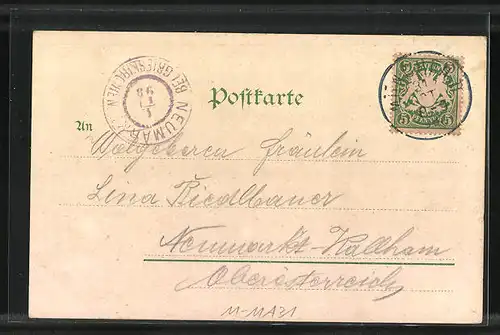 NEUMARKT
BEI GRIESKIRCHEN
1
11
98
Postkarte
An
Wolgeboren Fräulein
Lina Riedlbauer
Neumarkt-Kallham
Oberösterreich
5 5
M-MA31